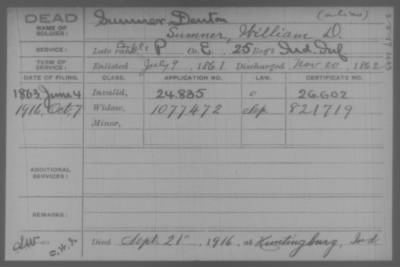 DEAD
Sumner Denton
(alias)
NAME OF SOLDIER:
Sumner, William D.
SERVICE:
Late rank, Corpl & P Co. E, 25 Reg't Ind. Inf
TERM OF SERVICE:
Enlisted July 9, 1861 Discharged Nov 20, 1862
DATE OF FILING. CLASS. APPLICATION NO. LAW. CERTIFICATE NO.
1863, June 4 Invalid, 24.835 c 26.602
1916, Oct. 7 Widow, 1077472 821719
Minor,
ADDITIONAL SERVICES:
REMARKS:
Died Sept. 21st, 1916, at Huntingburg, Ind